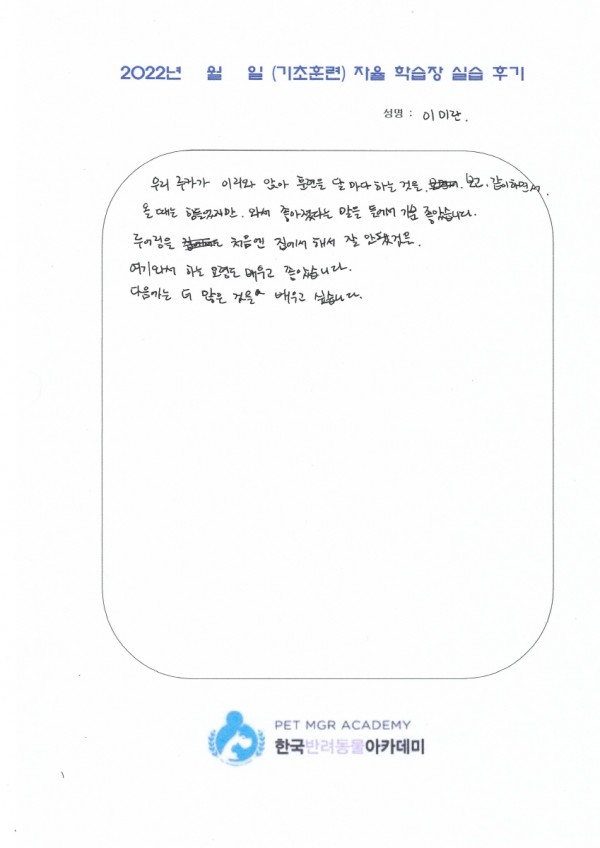 2022년 월 일 (기초훈련) 자율 학습장 실습 후기
성명 : 이미란.
우리 루카가 이리와 앉아 훈련을 달마다 하는 것을 보고. 같이하면서.
올 때는 힘들었지만. 와서 좋아졌다는 말을 들어서 기분 좋았습니다.
루어링을 처음엔 집에서 해서 잘 안됐것을.
여기와서 하는 요령도 배우고 좋았습니다.
다음에는 더 많은 것을 배우고 싶습니다.
PET MGR ACADEMY
한국반려동물아카데미